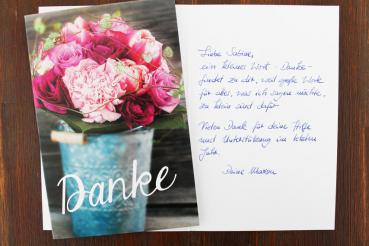 Danke
Liebe Sabine,
ein kleines Wort - Danke -
findet zu dir, weil große Worte
für alles, was ich sagen möchte,
zu klein sind dafür.
Vielen Dank für deine Hilfe
und Unterstützung im letzten
Jahr.
Deine